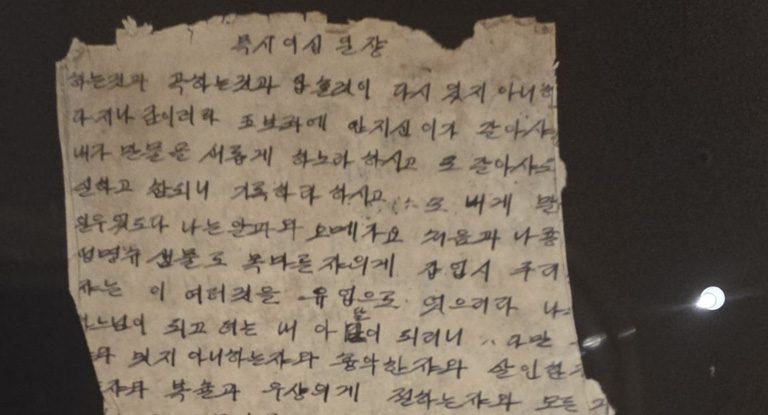 묵시이십일장
하는것과 곡하는것과 압흔것이 다시 잇지 아니하
라 지나 감이러라 보브좌에 안지신이가 갈아사
내가 만물을 새롭게 하노라 하시고 또 갈아사
실하고 참되니 기록하라 하시고 또 내게 말
일우웟도다 나는 알파와 오메가요 처음과 나종
생명슈 샘물로 목마른 자의게 갑업시 주리
자는 이 여러것을 유업으로 엇으리라 나
하느님이 되고 뎌는 내 아들이 되리니 다만
와 밋지 아니하는자와 흉악한자와 살인한
자와 복술과 우상의게 절하는자와 모든 거